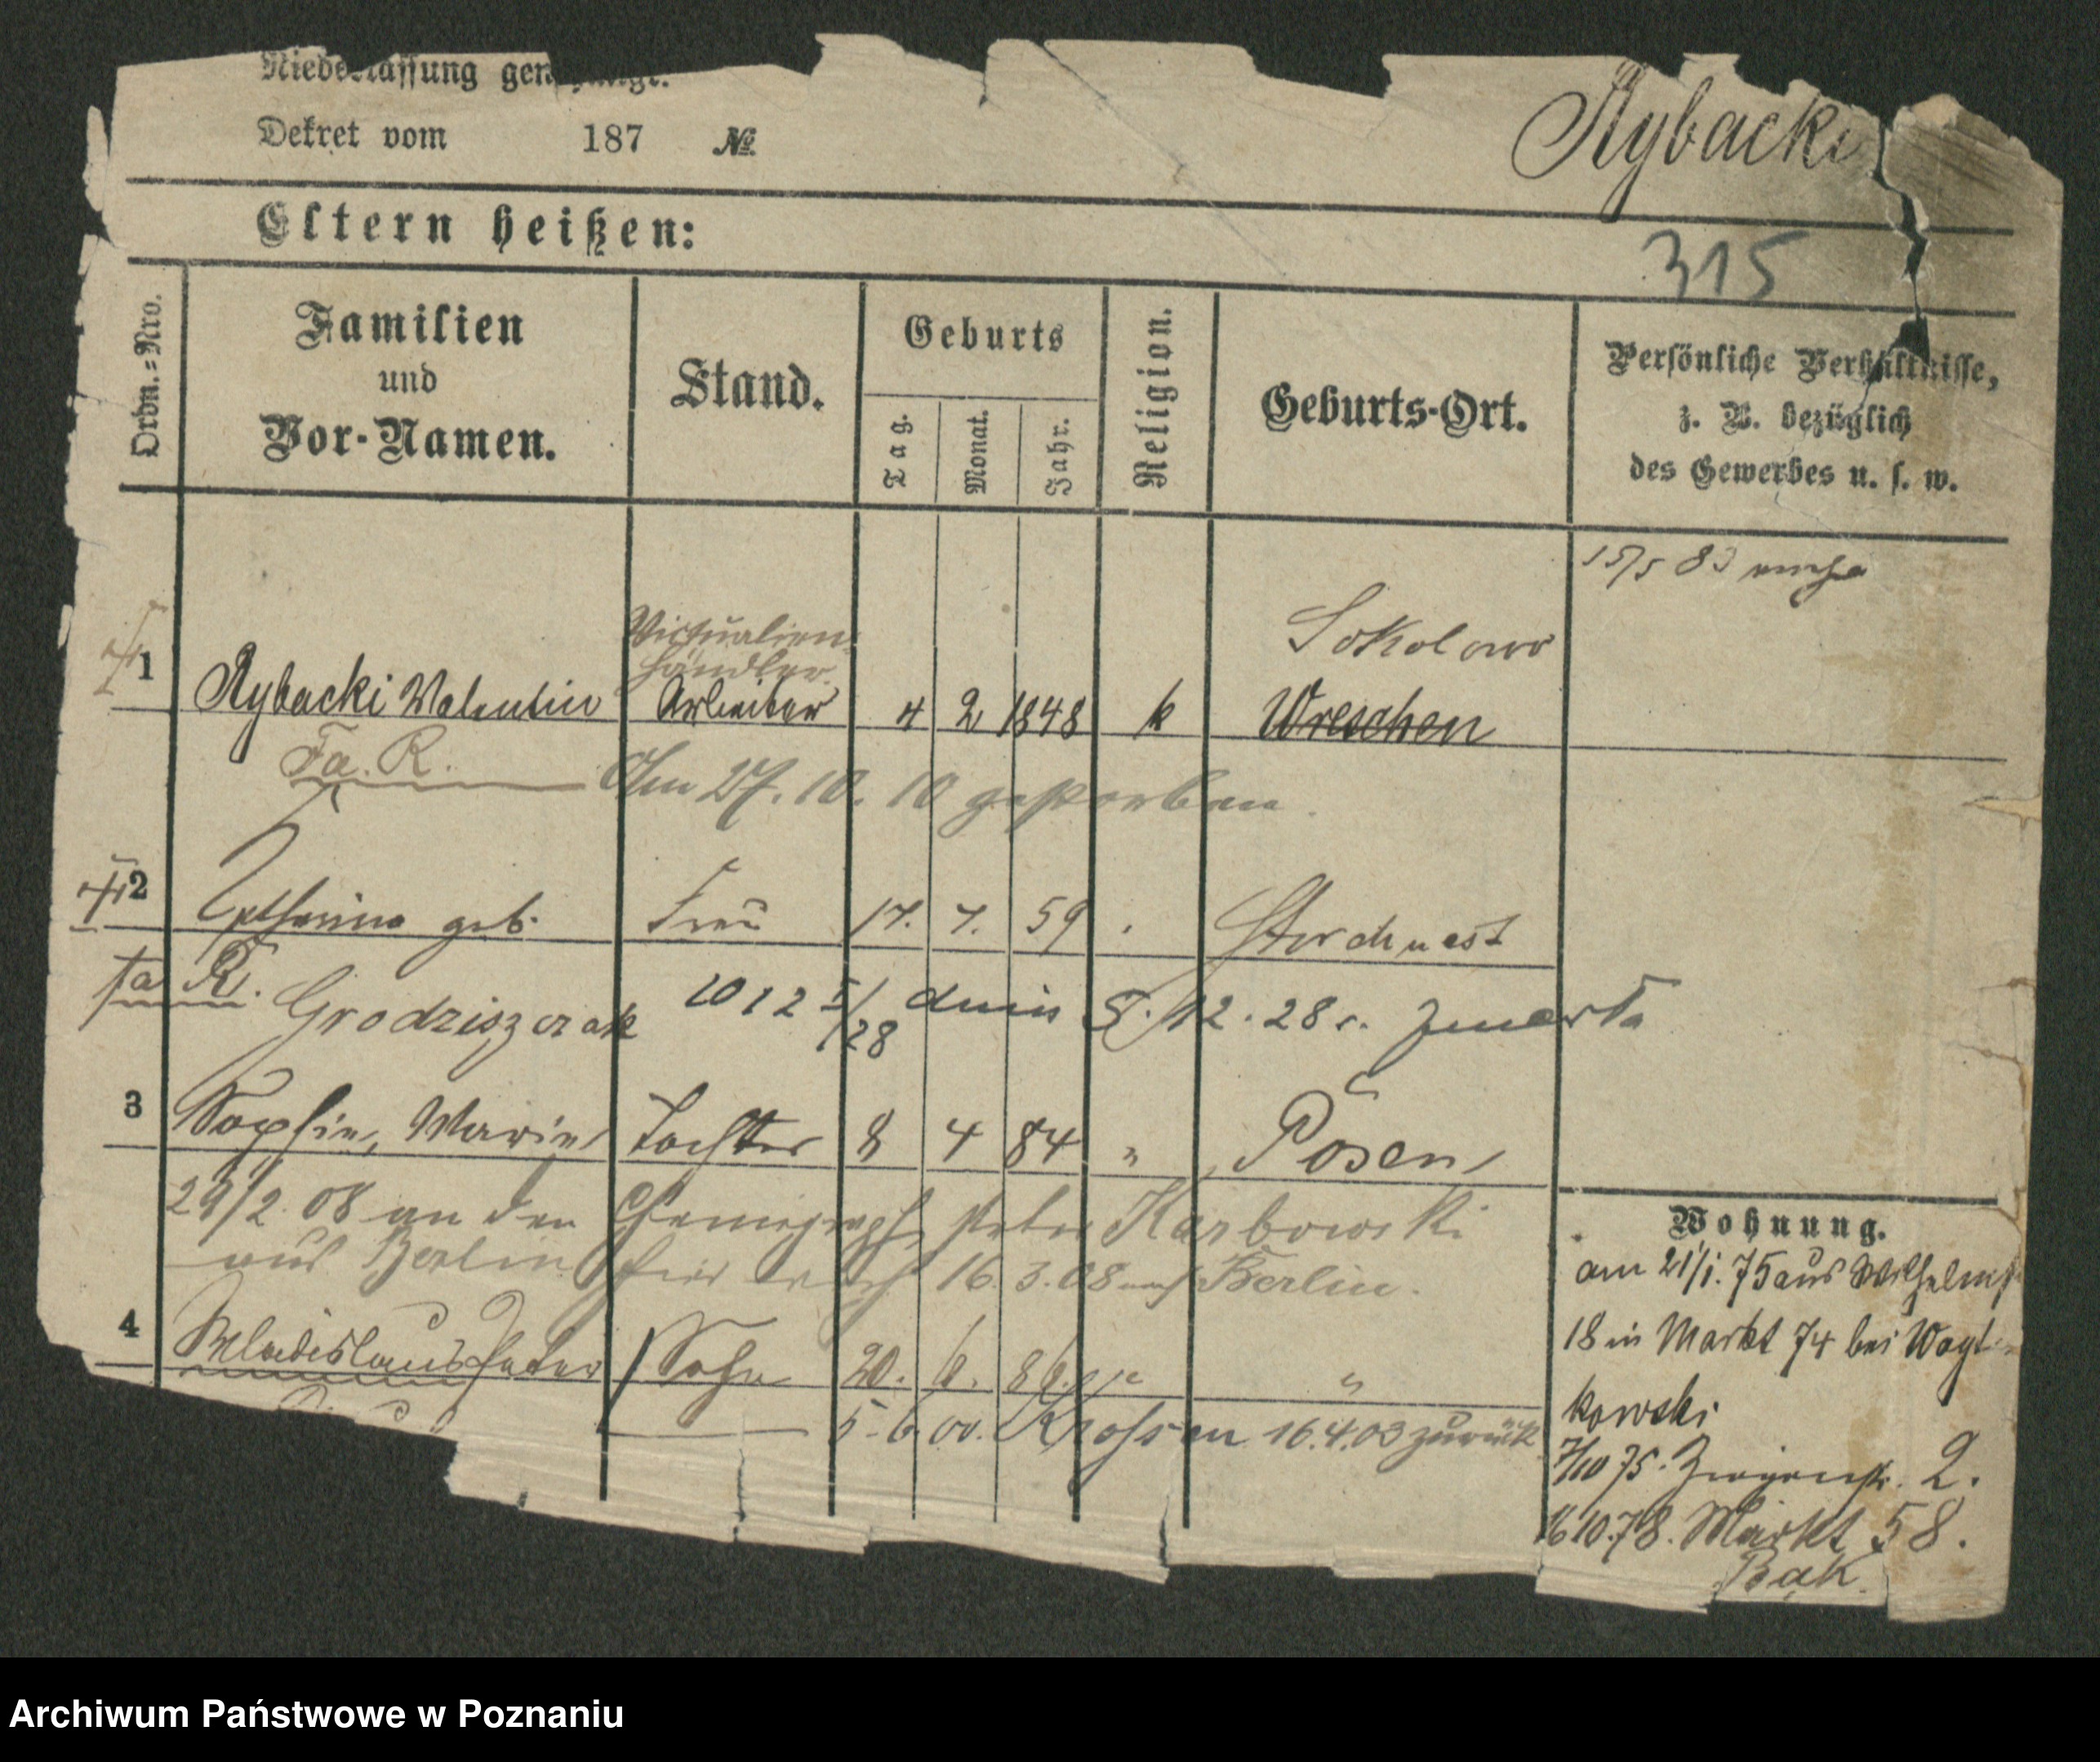 Niederlassung genehmigt.
Dekret vom 187 №
Rybacki
Eltern heißen:
315
Ordn.=Nro.
Familien
und
Vor-Namen.
Stand.
Geburts
Tag.
Monat.
Jahr.
Religion.
Geburts-Ort.
Persönliche Verhältnisse,
z. B. bezüglich
des Gewerbes u. s. w.
15/5 83
Victualien-
händler
Sokolowo
1 Rybacki Valentin Arbeiter 4 2 1848 k Wreschen
Fa. R. Am 27. 10. 10 gestorben.
2 Catharina geb. Frau 17. 7. 59 Storchnest
fa R. Grodziszczak 1012 I/28 dnia 5./12. 28 r. zmarła
3 Sophie, Marie Tochter 8 4 84 " Posen
29/2. 08 an den Chemigraph Peter Karbowski
aus Berlin 16. 3. 08 Berlin.
4 Wladislaus Peter Sohn 20. 6. 86. "
5. 6. 00. Krossen 16.4.03 zurück
Wohnung.
am 21/1. 75 aus Wilhelmst
18 in Markt 74 bei Woyt
kowski
7/10 75. 2.
16 10. 78. Markt 58.
Bąk.
Archiwum Państwowe w Poznaniu